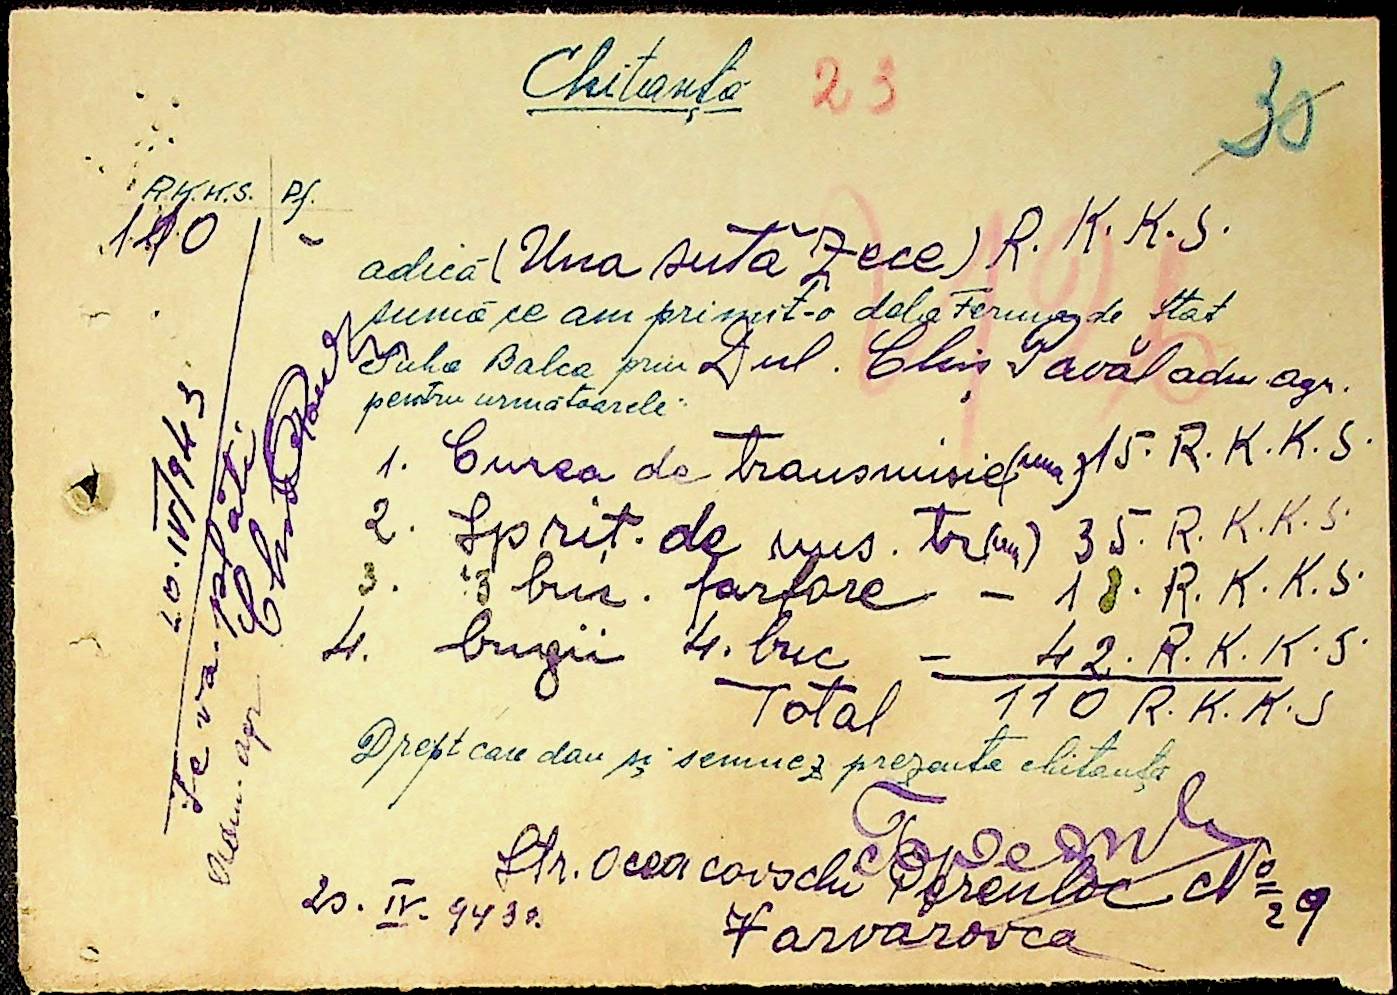 Chitanță 23
30
R.K.K.S. Pf.
110 -
adică (Una sută Zece) R. K. K. S.
sumă ce am primit-o dela Ferma de Stat
Suha Balca prin Dul. Chiș Pavăl adm. agr.
pentru următoarele:
1. Curea de transmisie (una) 15. R. K. K. S.
2. Șpriț. de uns. tr (un) 35. R. K. K. S.
3. 3 buc. farfore - 18. R. K. K. S.
4. bugii 4. buc - 42. R. K. K. S.
Total 110 R. K. K. S
Drept care dau și semnez prezenta chitanță
Str. No 29
20. IV. 943
Varvarovca
20.IV/943
Se va plăti
Adm. agr Chiș Pavăl